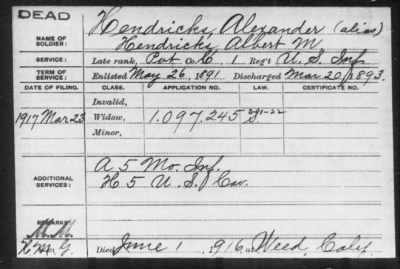 DEAD
Hendricks, Alexander (alias)
NAME OF SOLDIER: Hendricks Albert M.
SERVICE: Late rank, Pvt Co. C, 1 Reg't U. S. Inf.
TERM OF SERVICE: Enlisted May 26, 1891 Discharged Mar. 20, 1893.
DATE OF FILING. CLASS. APPLICATION NO. LAW. CERTIFICATE NO.
Invalid,
1917 Mar 23 Widow, 1.097.245
Minor,
ADDITIONAL SERVICES: A 5 Mo. Inf.
H 5 U. S. Cav.
REMARKS:
Died June 1, 1916, at Weed, Calif.